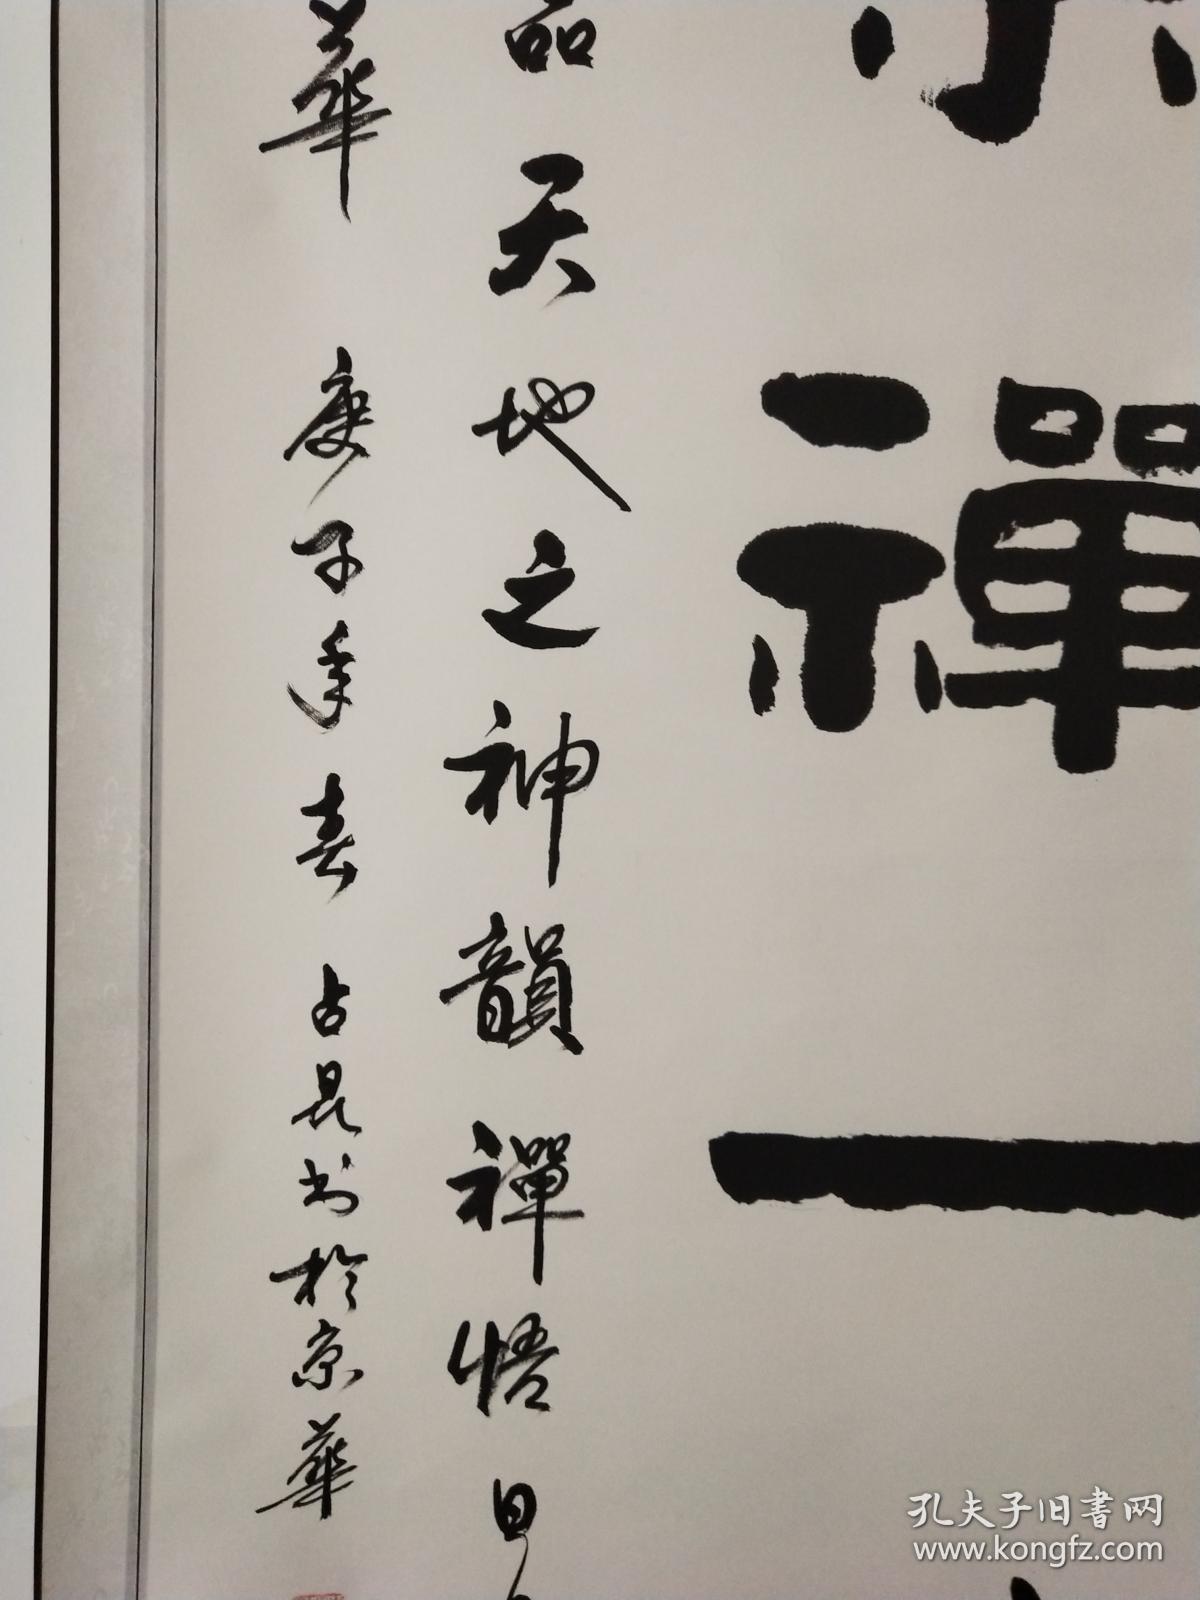 禪一
品天地之神韻禪悟日
華 庚子年春 占昆书於京華
孔夫子旧書网
www.kongfz.com